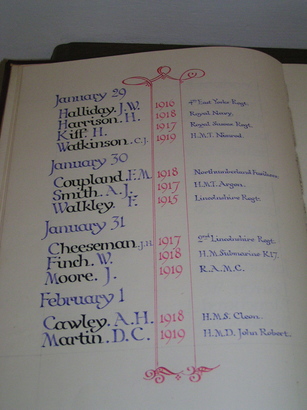 January 29
Halliday. J.W. 1916 4th East Yorks Regt.
Harrison. H. 1918 Royal Navy.
Kiff. H. 1917 Royal Sussex Regt.
Watkinson. C.J. 1919 H.M.T.
January 30
Coupland. E.M. 1918 Northumberland Fusiliers.
Smith. A.J. 1917 H.M.T. Argon.
Walkley. F. 1915 Lincolnshire Regt.
January 31
Cheeseman. J.H. 1917 2nd Lincolnshire Regt.
Finch. W. 1918 H.M. Submarine K17.
Moore. J. 1919 R.A.M.C.
February 1
Cawley. A.H. 1918 H.M.S. Cleon.
Martin. D.C. 1919 H.M.D. John Robert.